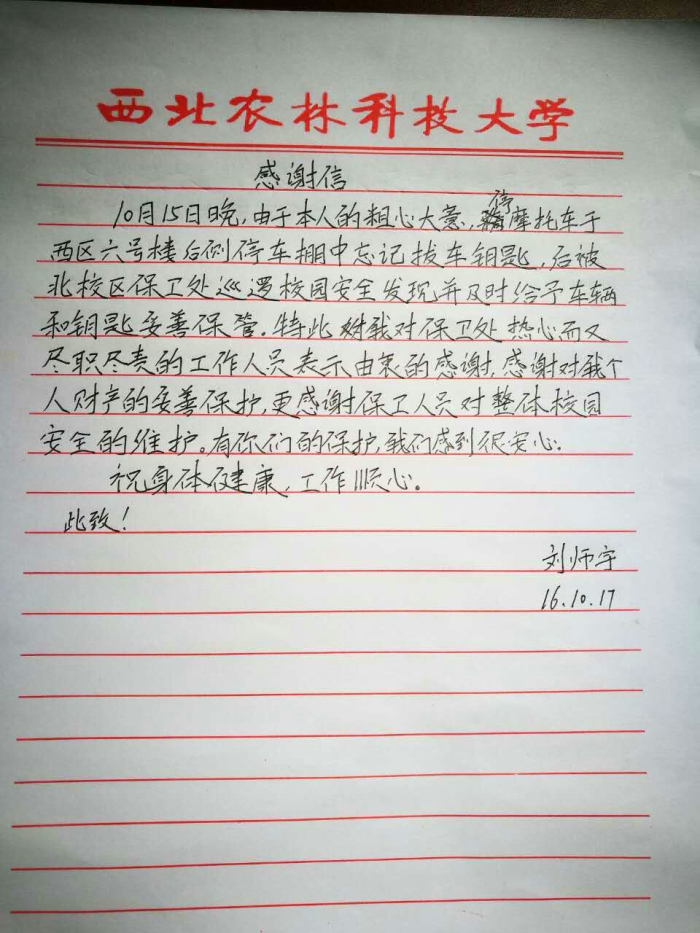 西北农林科技大学
感谢信
10月15日晚,由于本人的粗心大意,停摩托车于
西区六号楼后侧停车棚中忘记拔车钥匙,后被
北校区保卫处巡逻校园安全发现,并及时给予车辆
和钥匙妥善保管.特此 我对保卫处热心而又
尽职尽责的工作人员表示由衷的感谢,感谢对我个
人财产的妥善保护,更感谢保卫人员对整体校园
安全的维护。有你们的保护,我们感到很安心.
祝身体健康,工作顺心。
此致!
刘师宇
16.10.17